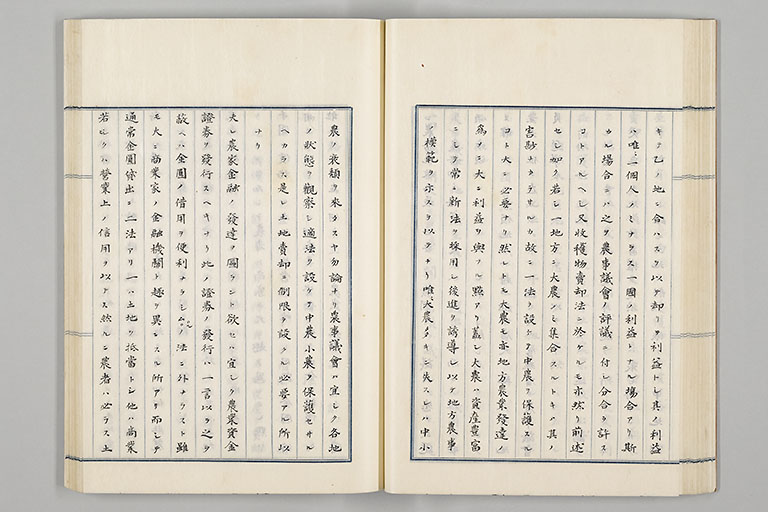 キモ乙ノ地ニ合ハス以テ却リテ利益トシ其ノ利益
ハ唯ニ一個人ノミナラス一國ノ利益トナル場合アリ斯
カル場合ニハ之ヲ農事議會ノ評議ニ付シ分合ヲ許ス
コトアルヘシ又收穫物賣却法ニ於ケルモ亦然リ前述
セシ如ク若シ一地方ニ大農ノミ集合スルトキハ其ノ
害尠ナカラサルカ故ニ一法ヲ設ケテ中農ヲ保護スル
コト大ニ必要ナリ然レトモ大農モ亦地方農業發達ノ
為メニ大ニ利益ヲ與フル點アリ蓋シ大農ハ資産豊富
ニシテ常ニ新法ヲ採用シ後進ヲ誘導シ以テ地方農事
ノ模範ヲ示スヲ以テナリ唯大農ノミニ失スレハ中小
農ノ衰頽ヲ來タスヤ勿論ナリ農事議會ハ宜シク各地
ノ狀態ヲ觀察シ適法ヲ設ケテ中農小農ヲ保護セサル
ヘカラス是レ土地賣却ニ制限ヲ設クル必要アル所以
ナリ
夫レ農家金融ノ發達ヲ圖ラント欲セハ宜シク農業資金
證券ヲ發行スヘキナリ此ノ證券ノ發行ハ一言以テ之ヲ
故ヘハ金圓ノ借用ヲ便利ナラシムルノ法ニ外ナラスト雖
モ大ニ商業家ノ金融機關ト趣ヲ異ニスル所アリ而シテ
通常金圓貸出ニ二法アリ一ハ土地ヲ抵當トシ他ハ商業
若シクハ營業上ノ信用ヲ以テス然ルニ農者ハ必ラス土